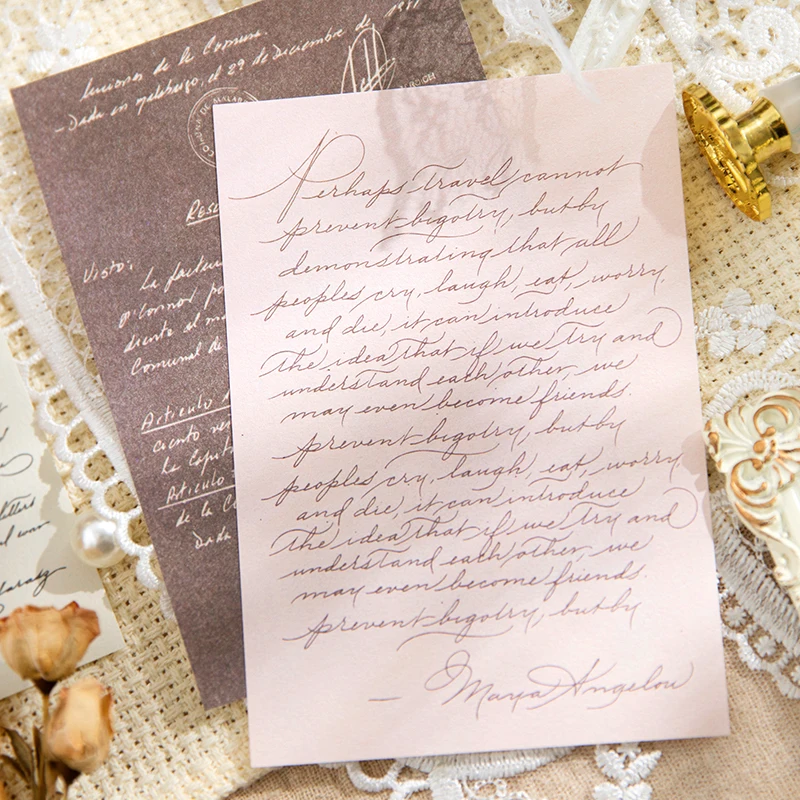 Lecciones de la Comuna.
- Dada en Malabrigo, el 29 de Diciembre de 1981
COMUNA DE MALABR
Visto:
La factura
O'Connor po
Comunal de
Articulo
ciento ve
La Capit
Articulo
de la Co
Dada
Perhaps Travel cannot
prevent bigotry, but by
demonstrating that all
peoples cry, laugh, eat, worry,
and die, it can introduce
the idea that if we try and
understand each other, we
may even become friends.
prevent bigotry, but by
peoples cry, laugh, eat, worry,
and die, it can introduce
the idea that if we try and
understand each other, we
may even become friends.
prevent bigotry, but by
— Maya Angelou
letters